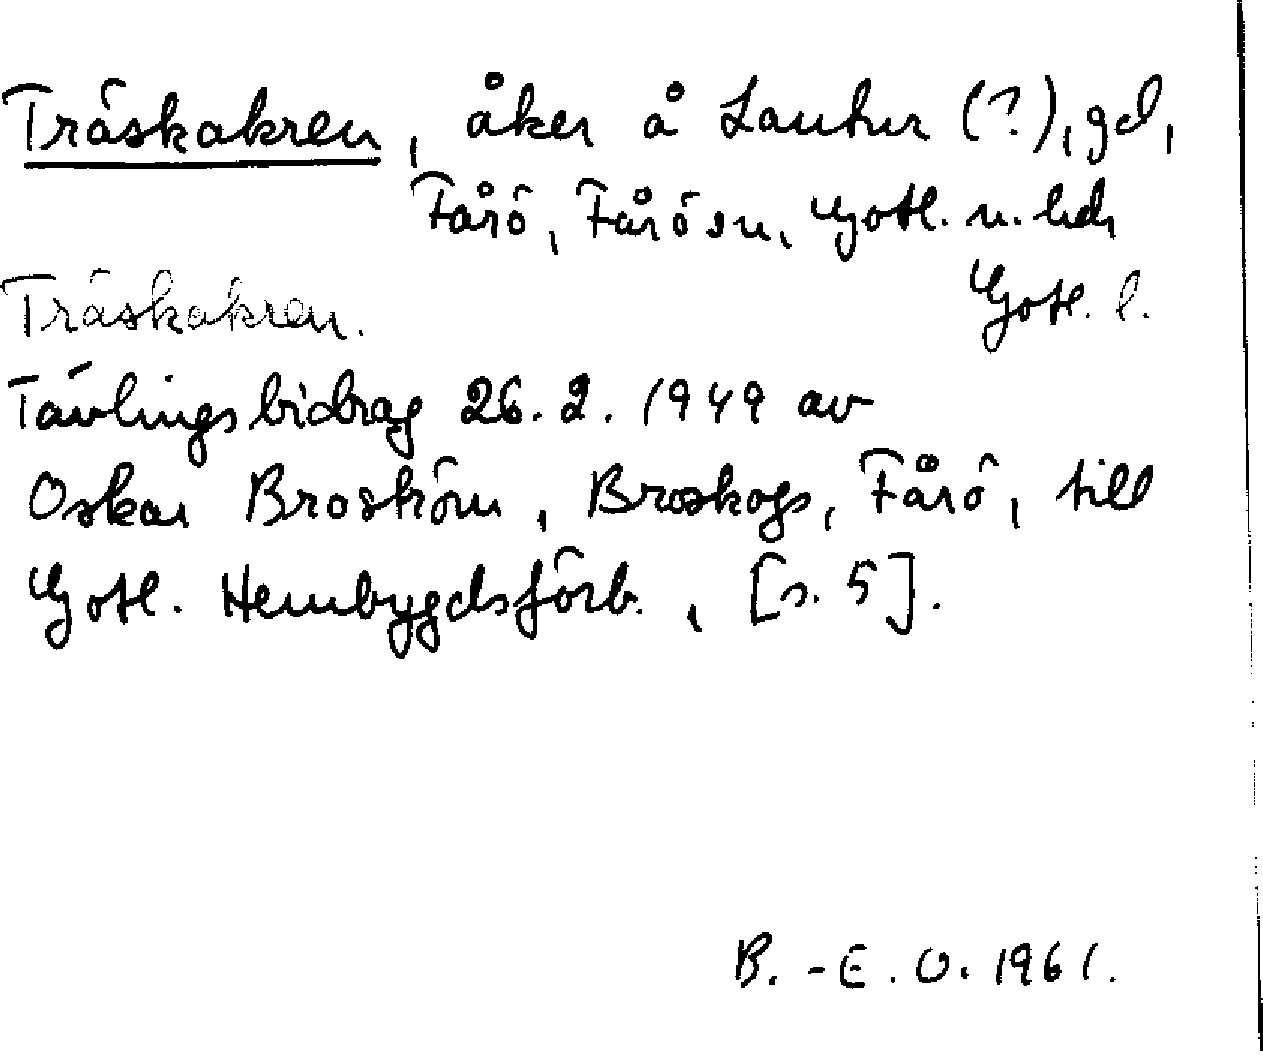 Träskakren, åker å Lauter (?), gd,
Fårö, Fårö sn, Gotl. n. hd,
Gotl. l.
Träskakren.
Tävlingsbidrag 26. 2. 1949 av
Oskar Broström, Broskogs, Fårö, till
Gotl. Hembygdsförb., [s. 5].
B.-E. O. 1961.